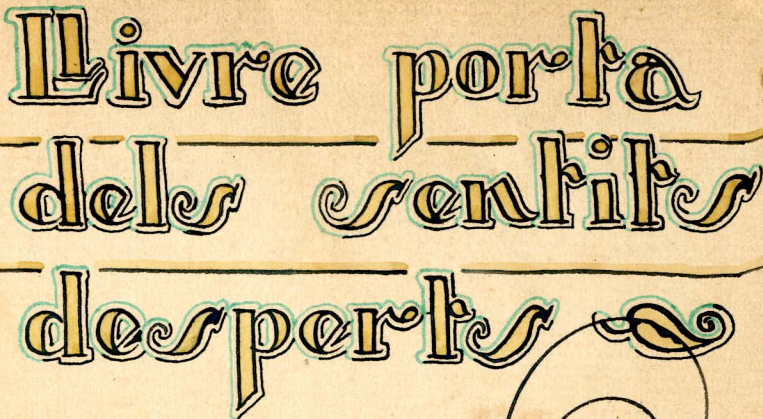 Llivre porta
dels sentits
desperts